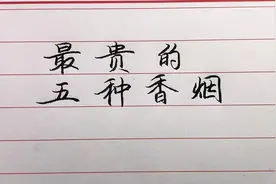 最贵的
五种香烟